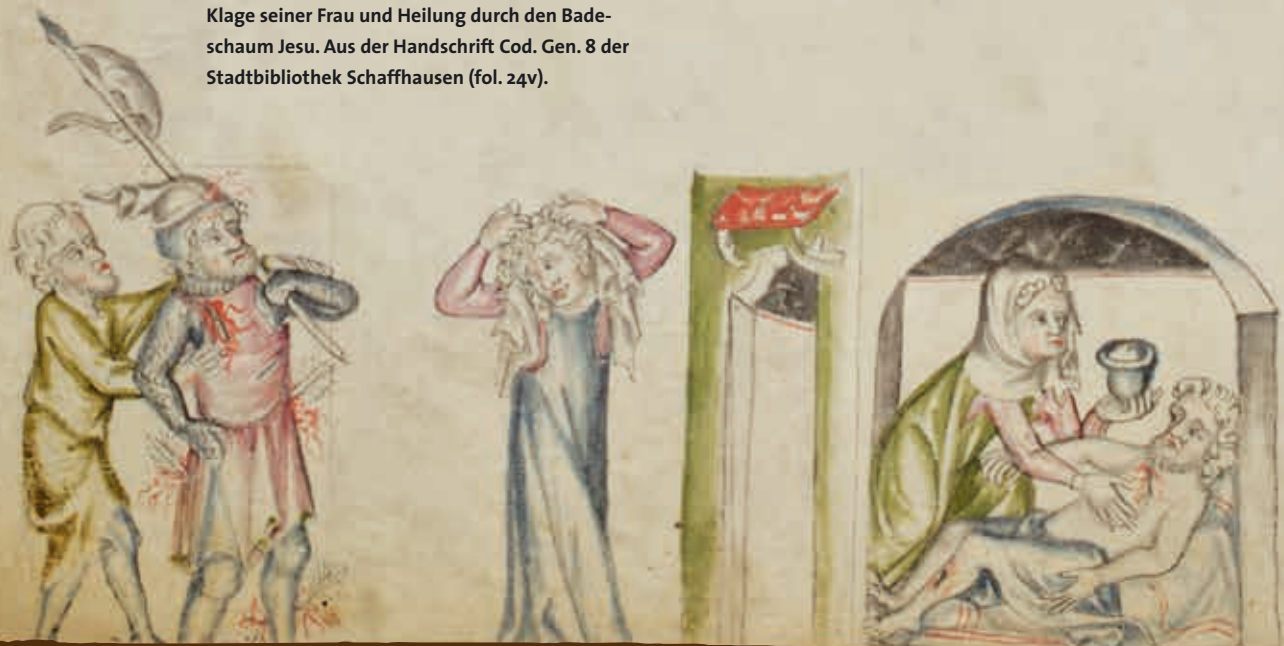 Klage seiner Frau und Heilung durch den Bade-
schaum Jesu. Aus der Handschrift Cod. Gen. 8 der
Stadtbibliothek Schaffhausen (fol. 24v).